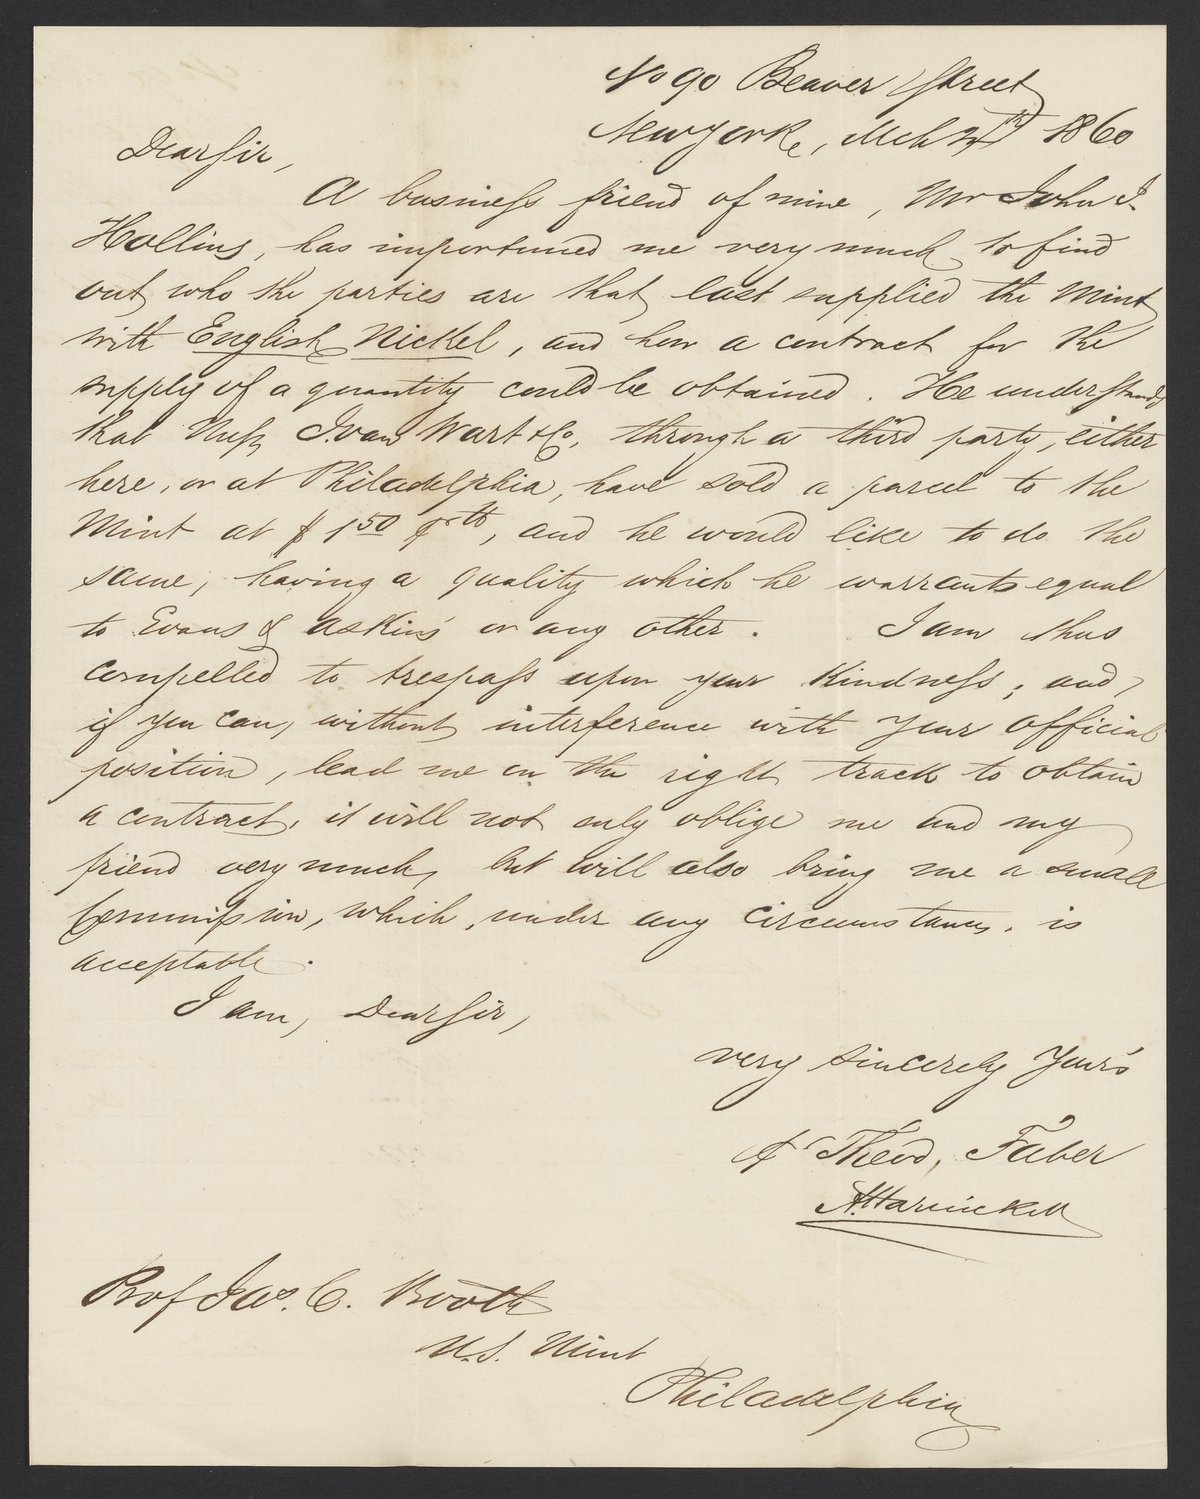 No 90 Beaver Street
New York, Mch 1860
Dear Sir,
A business friend of mine, Mr John J.
Hollins, has importuned me very much to find
out who the parties are that last supplied the Mint
with English Nickel, and how a contract for the
supply of a quantity could be obtained. He understands
that Mess J. van Wart & Co, through a third party, either
here, or at Philadelphia, have sold a parcel to the
Mint at $ 1 50 lb, and he would like to do the
same, having a quality which he warrants equal
to Evans & Askins' or any other. I am thus
compelled to trespass upon your kindness; and,
if you can, without interference with your official
position, lead me on the right track to obtain
a contract, it will not only oblige me and my
friend very much, but will also bring me a small
Commission, which, under any circumstances, is
acceptable.
I am, Dear Sir,
very sincerely Yours
Theod, Faber
Prof Jas. C. Booth
U.S. Mint
Philadelphia